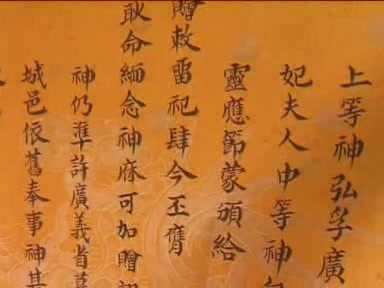 上等神弘孚廣
妃夫人中等神
靈應節蒙頒給
贈敕留祀肆今丕膺
耿命緬念神庥可加贈
神仍準許廣義省慕
城邑依舊奉事神其